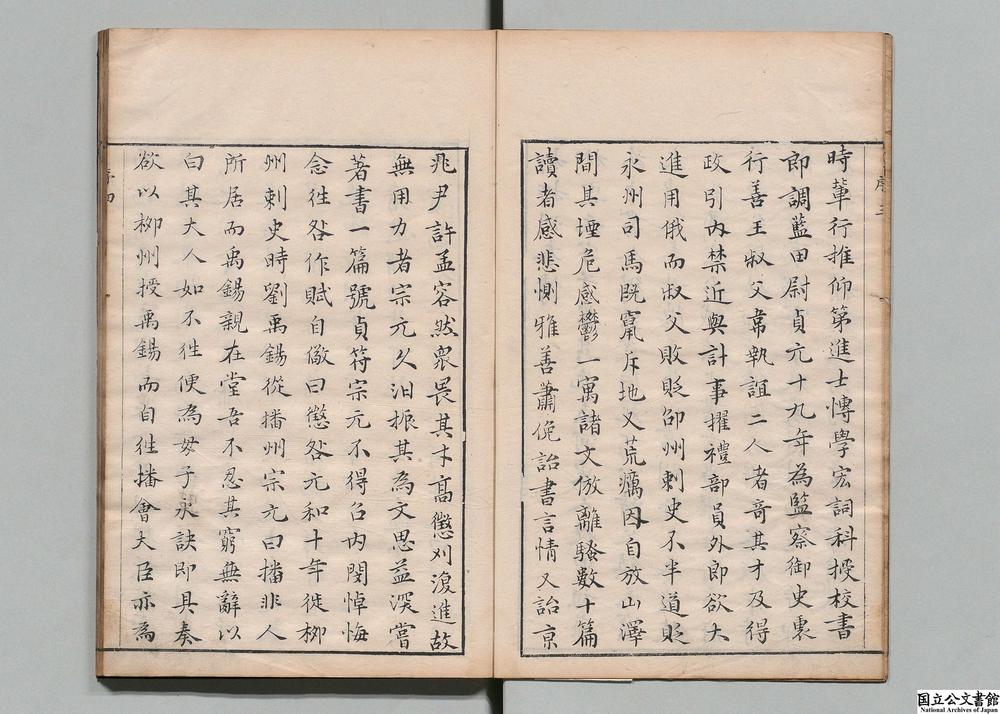 時輩行推仰第進士慱學宏詞科授校書
郎調藍田尉貞元十九年為監察御史裏
行善王叔文韋執誼二人者奇其才及得
政引內禁近與計事擢禮部員外郎欲大
進用俄而叔文敗貶邵州刺史不半道貶
永州司馬既竄斥地又荒癘因自放山澤
間其堙危感鬱一寓諸文倣離騷數十篇
讀者感悲惻雅善蕭俛詒書言情又詒京
兆尹許孟容然衆畏其才高懲刈復進故
無用力者宗元久汩振其為文思益深嘗
著書一篇號貞符宗元不得召內閔悼悔
念徃咎作賦自儆曰懲咎元和十年徙柳
州刺史時劉禹錫從播州宗元曰播非人
所居而禹錫親在堂吾不忍其窮無辭以
白其大人如不徃便為母子永訣即具奏
欲以柳州授禹錫而自徃播會大臣亦為
序三
序四
国立公文書館
National Archives of Japan